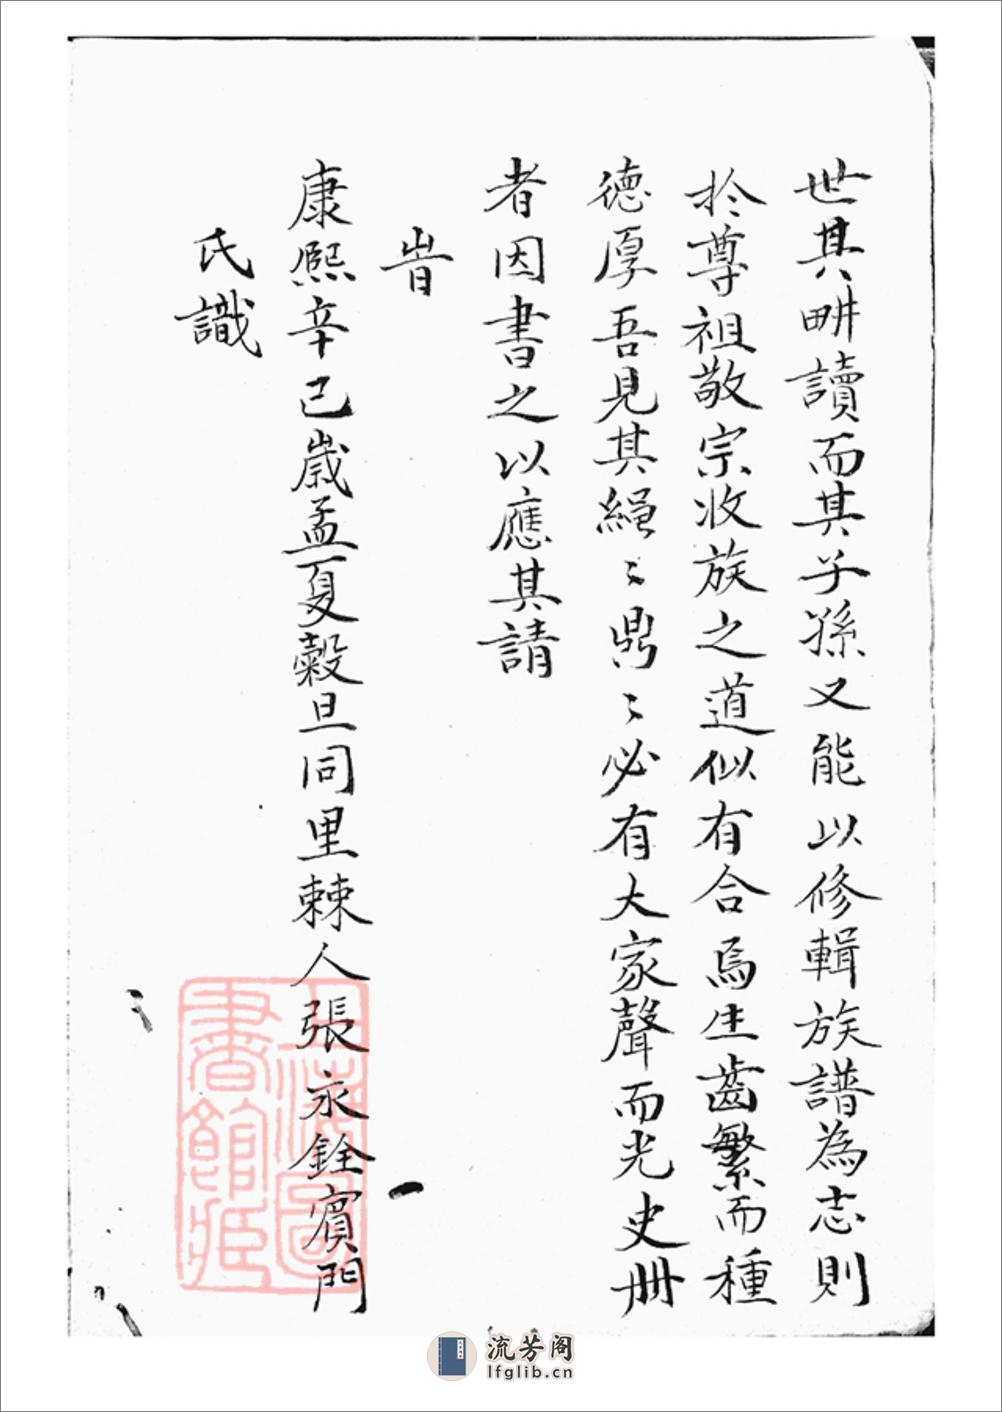 世其畊讀而其子孫又能以修輯族譜為志則
扵尊祖敬宗收族之道似有合焉生齒繁而種
德厚吾見其繩〻鼎〻必有大家聲而光史册
者因書之以應其請
旹
康熙辛巳歲孟夏穀旦同里棘人張永銓賓門
氏識
上海圖
書館藏
流芳阁
lfglib.cn